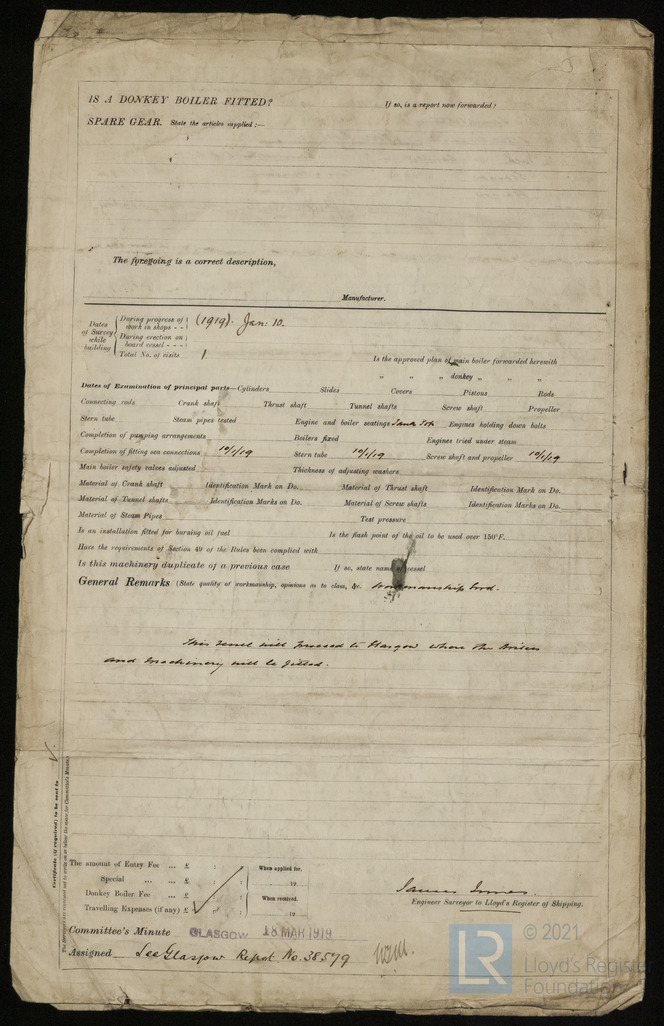 IS A DONKEY BOILER FITTED? If so, is a report now forwarded?
SPARE GEAR. State the articles supplied :—
The foregoing is a correct description,
Manufacturer.
Dates of Survey while building
During progress of work in shops - - (1919). Jan: 10.
During erection on board vessel - - -
Total No. of visits 1
Is the approved plan of main boiler forwarded herewith
" " " donkey " " "
Dates of Examination of principal parts—Cylinders Slides Covers Pistons Rods
Connecting rods Crank shaft Thrust shaft Tunnel shafts Screw shaft Propeller
Stern tube Steam pipes tested Engine and boiler seatings Engines holding down bolts
Completion of pumping arrangements Boilers fixed Engines tried under steam
Completion of fitting sea connections 10/1/19 Stern tube 10/1/19 Screw shaft and propeller 10/1/19
Main boiler safety valves adjusted Thickness of adjusting washers
Material of Crank shaft Identification Mark on Do. Material of Thrust shaft Identification Mark on Do.
Material of Tunnel shafts Identification Marks on Do. Material of Screw shafts Identification Marks on Do.
Material of Steam Pipes Test pressure
Is an installation fitted for burning oil fuel Is the flash point of the oil to be used over 150°F.
Have the requirements of Section 49 of the Rules been complied with
Is this machinery duplicate of a previous case If so, state name of vessel
General Remarks (State quality of workmanship, opinions as to class, &c. Workmanship Good.
This vessel will proceed to Glasgow where the Boilers
and Machinery will be fitted.
Certificate (if required) to be sent to
The amount of Entry Fee ... £ : : When applied for,
Special ... ... £ : : 19
Donkey Boiler Fee ... £ : : When received,
Travelling Expenses (if any) £ : : 19
James Innes.
Engineer Surveyor to Lloyd's Register of Shipping.
Committee's Minute GLASGOW 18 MAR 1919
Assigned See Glasgow Report No. 38579
LR © 2021
Lloyd's Register
Foundation